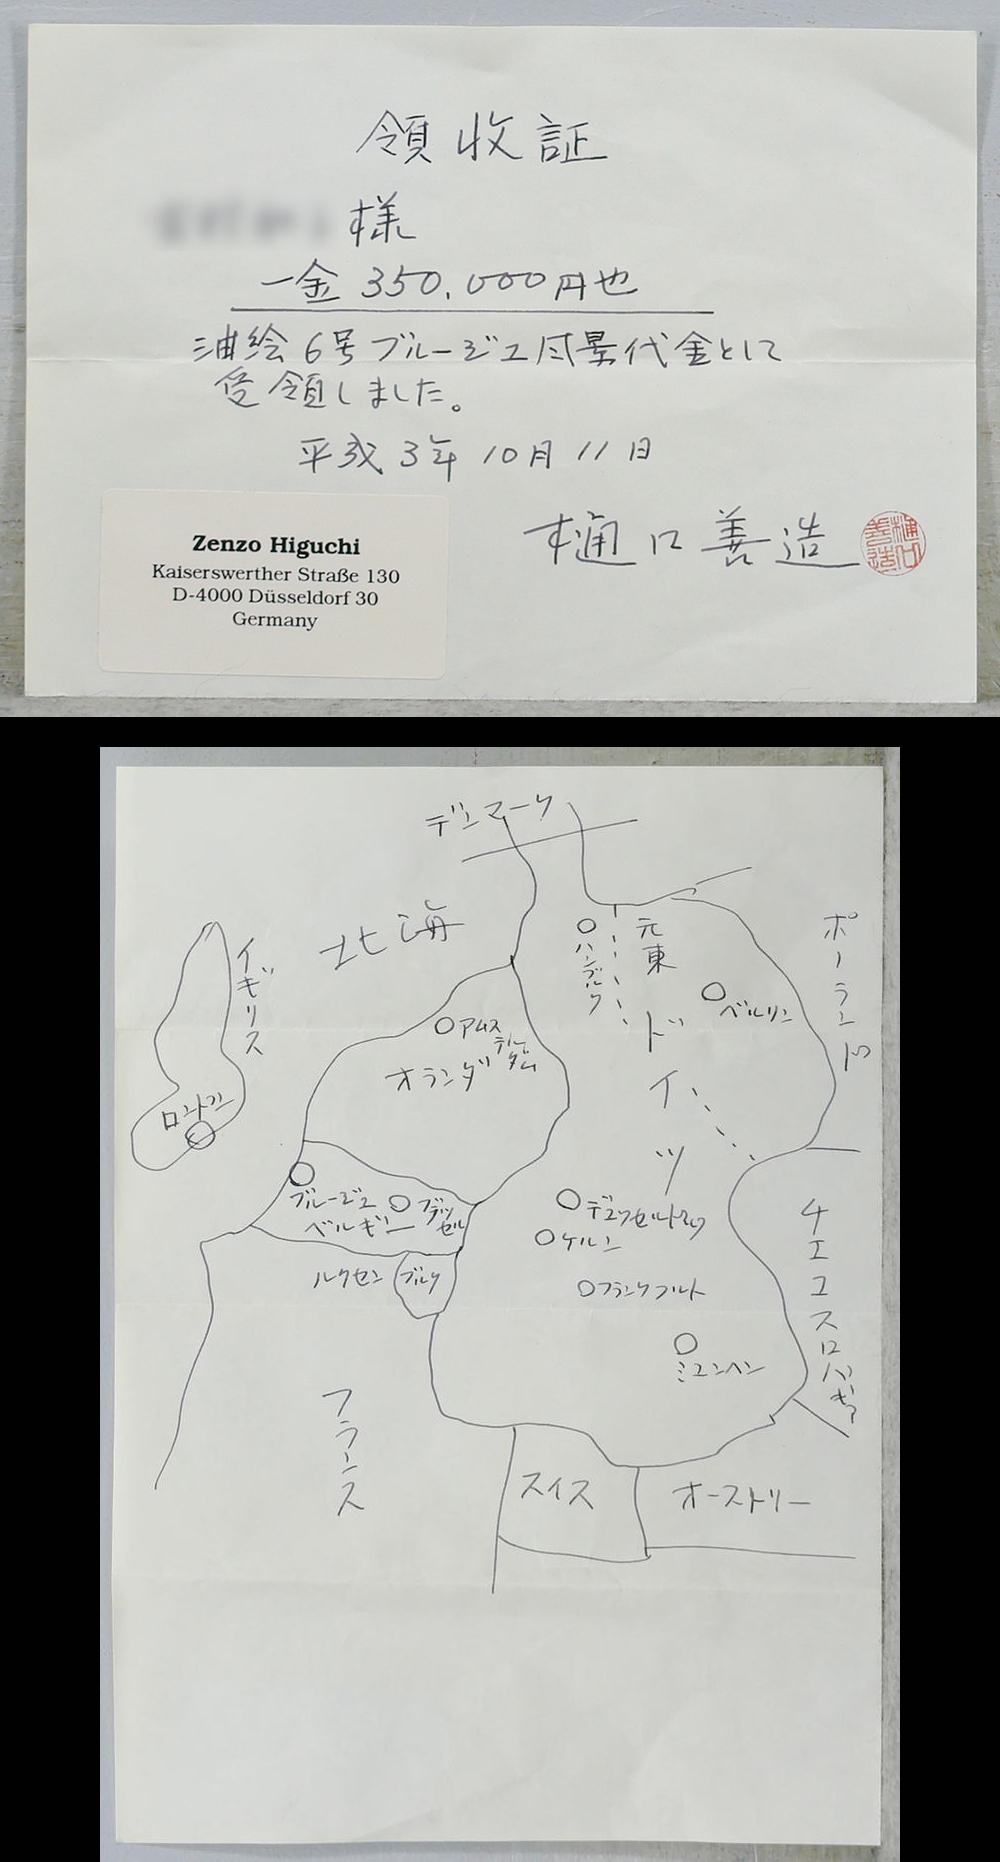 領収証
様
一金 350,000円也
油絵 6号 ブルージュ風景代金として
受領しました。
平成 3年 10月 11日
樋口善造
樋口善造
Zenzo Higuchi
Kaiserswerther Straße 130
D-4000 Düsseldorf 30
Germany
デンマーク
北海
イギリス
ロンドン
ハンブルク
元東
ドイツ
ベルリン
ポーランド
アムステルダム
オランダ
ブルージュ
ベルギー
ブラッセル
デュッセルドルフ
ケルン
ルクセンブルク
フランクフルト
ミュンヘン
チェコスロバキア
フランス
スイス
オーストリー